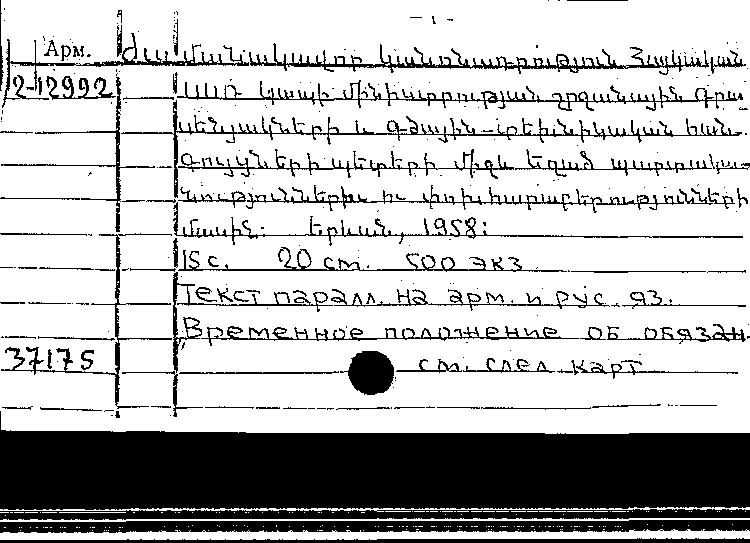 - 1 -
Арм. Ժամանակավոր կանոնադրություն Հայկական
2-12992 ՍՍՌ կապի մինիստրության շրջանային գրա-
սենյակների և գծային-տեխնիկական հան-
գույցների պետերի միջև եղած պարտակա-
նությունների և փոխհարաբերությունների
մասին: Երևան, 1958:
15 с. 20 см. 500 экз
Текст паралл. на арм. и рус. яз.
Временное положение об обязан-
37175 см. след. карт